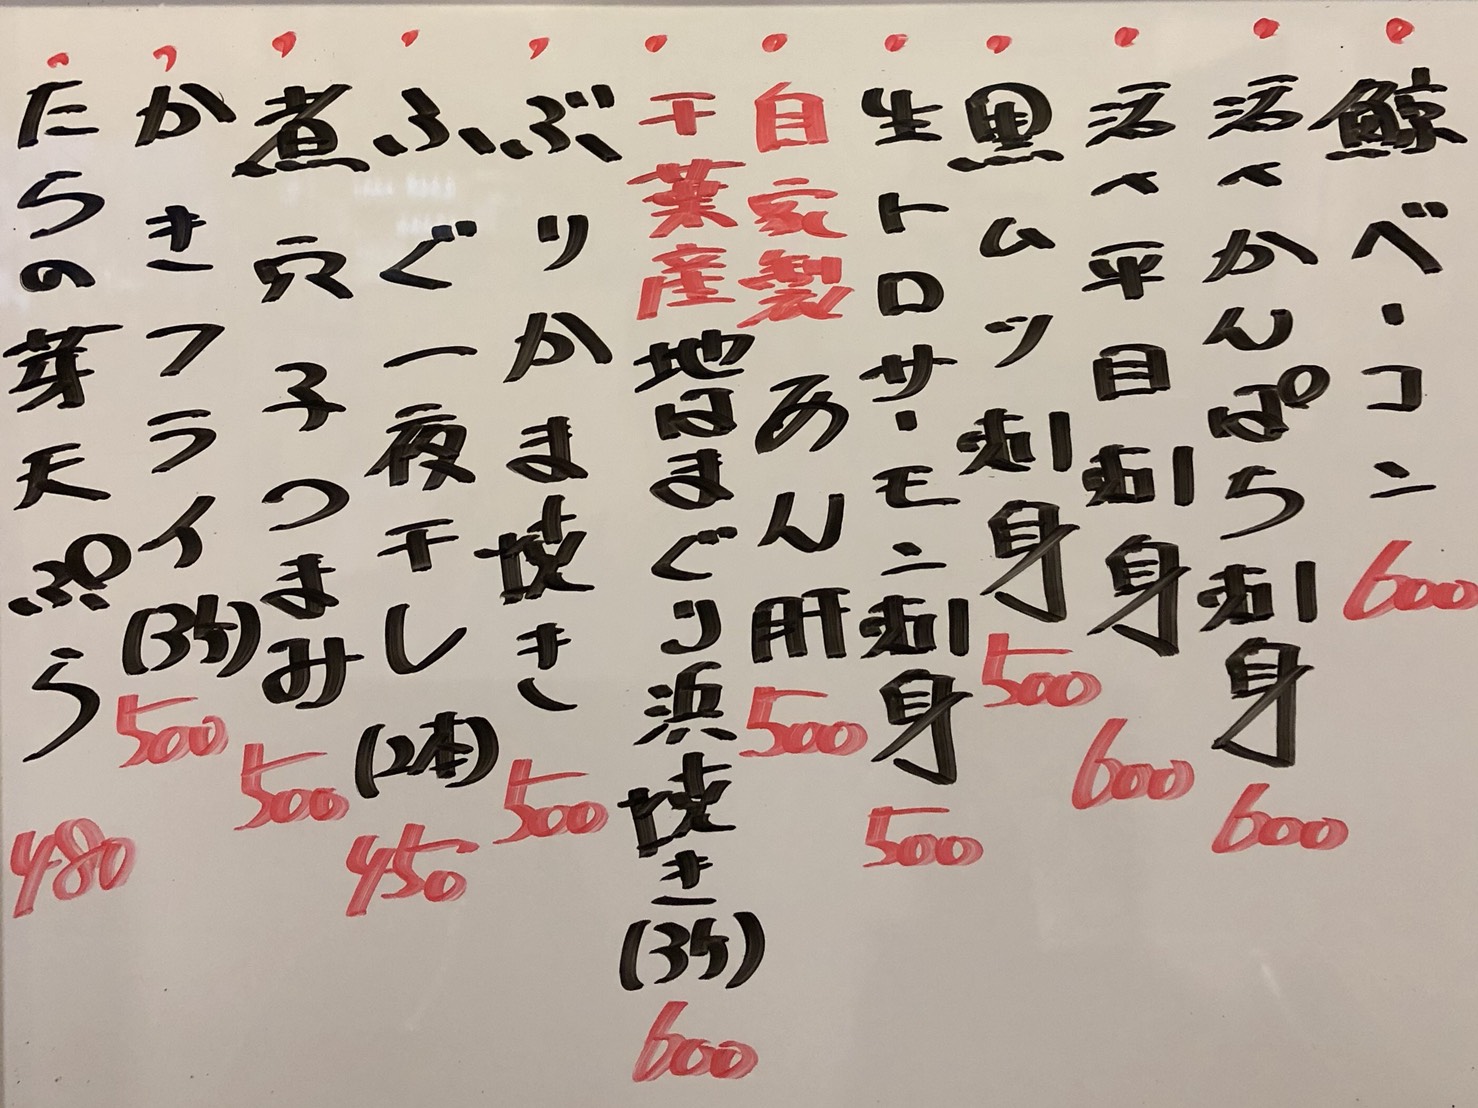 ・鯨ベーコン 600
・活〆かんぱち刺身 600
・活〆平目刺身 600
・黒ムツ刺身 500
・生トロサーモン刺身 500
・自家製あん肝 500
・千葉産地はまぐり浜焼き(3ケ) 600
・ぶりかま焼き 500
・ふぐ一夜干し(2本) 450
・煮穴子つまみ 500
・かきフライ(3ケ) 500
・たらの芽天ぷら 480